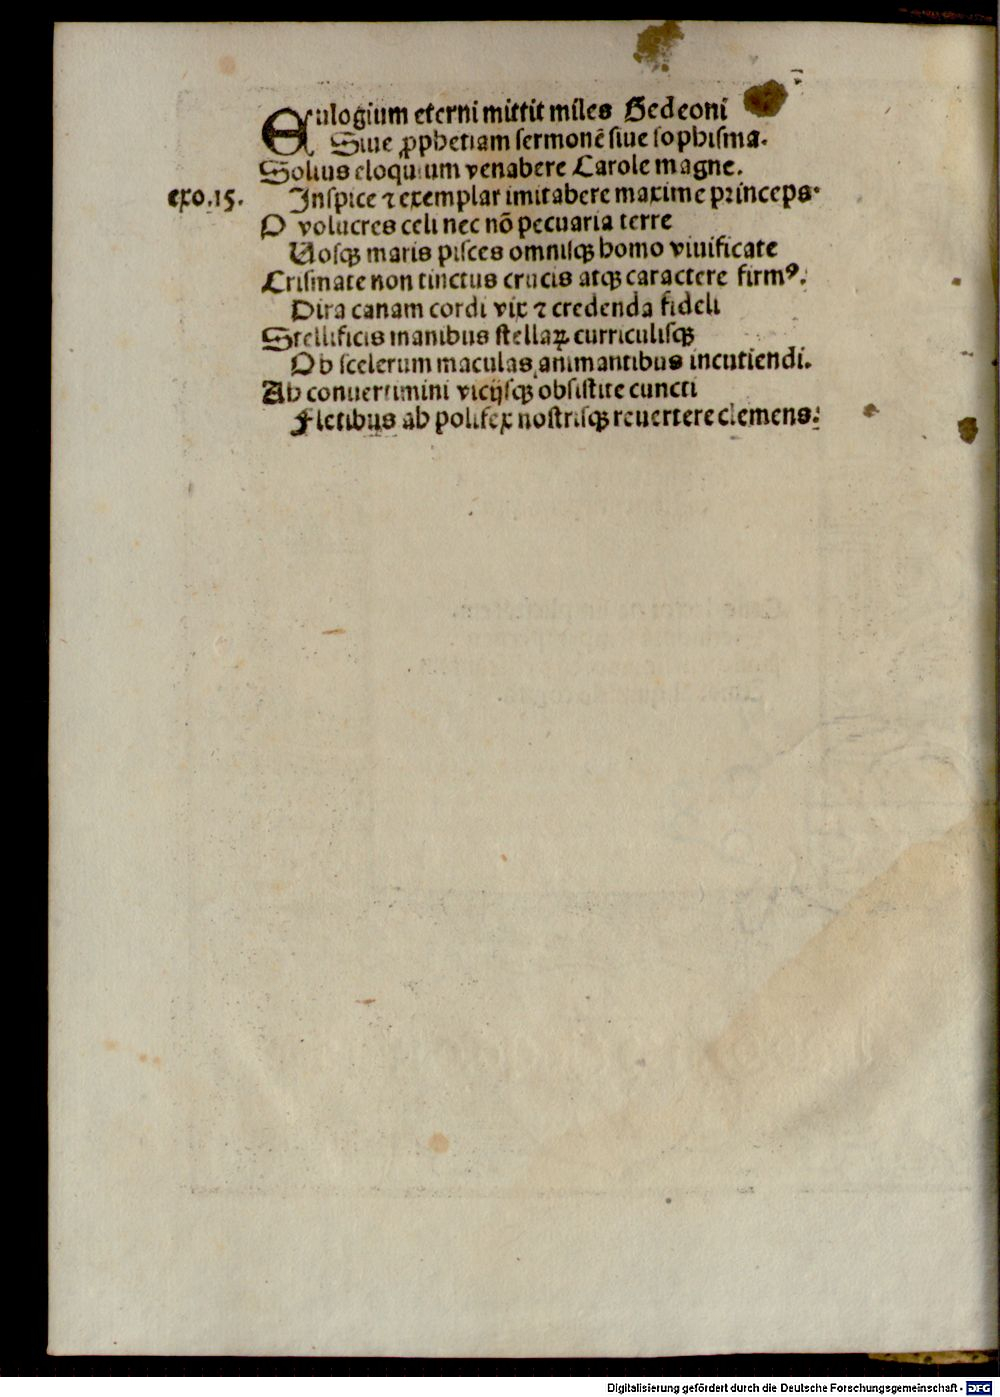 Eulogium eterni mittit miles Gedeoni
Siue ꝓphetiam sermonē siue sophisma.
Solius eloquium venabere Carole magne.
exo.15. Inspice ⁊ exemplar imitabere maxime princeps·
O volucres celi nec nō pecuaria terre
Uosqꝫ maris pisces omnisqꝫ homo viuificate
Crismate non tinctus crucis atqꝫ caractere firmꝰ.
Dira canam cordi vix ⁊ credenda fideli
Stellificis manibus stellaꝝ curriculisqꝫ
Ob scelerum maculas animantibus incutiendi.
Ab conuertimini vicijsqꝫ obsistite cuncti
Fletibus ab polifex nostrisqꝫ reuertere clemens.
Digitalisierung gefördert durch die Deutsche Forschungsgemeinschaft - DFG